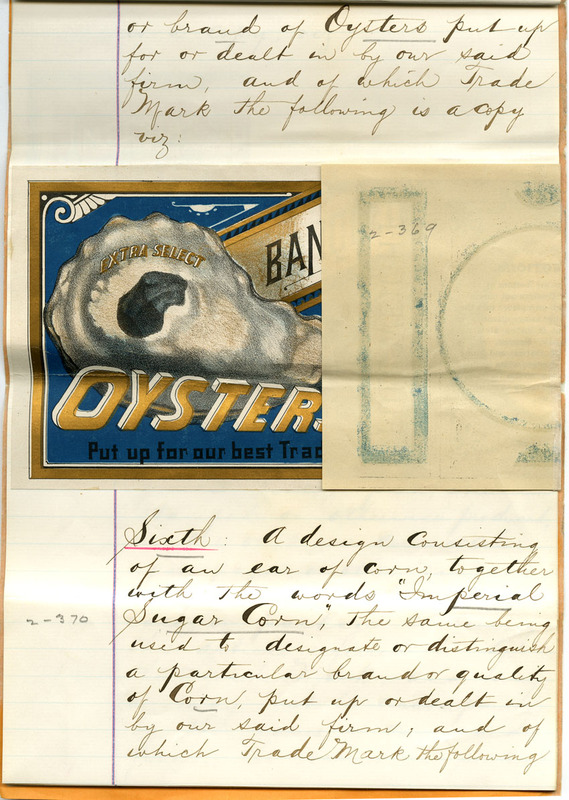 or brand of Oysters put up
for or dealt in by our said
firm, and of which Trade
Mark the following is a copy
viz:
EXTRA SELECT
BAN
2-369
OYSTERS
Put up for our best Trad
Sixth: A design consisting
of an ear of corn, together
with the words "Imperial
Sugar Corn", the same being
2-370
used to designate or distinguish
a particular brand or quality
of Corn, put up or dealt in
by our said firm, and of
which Trade Mark the following